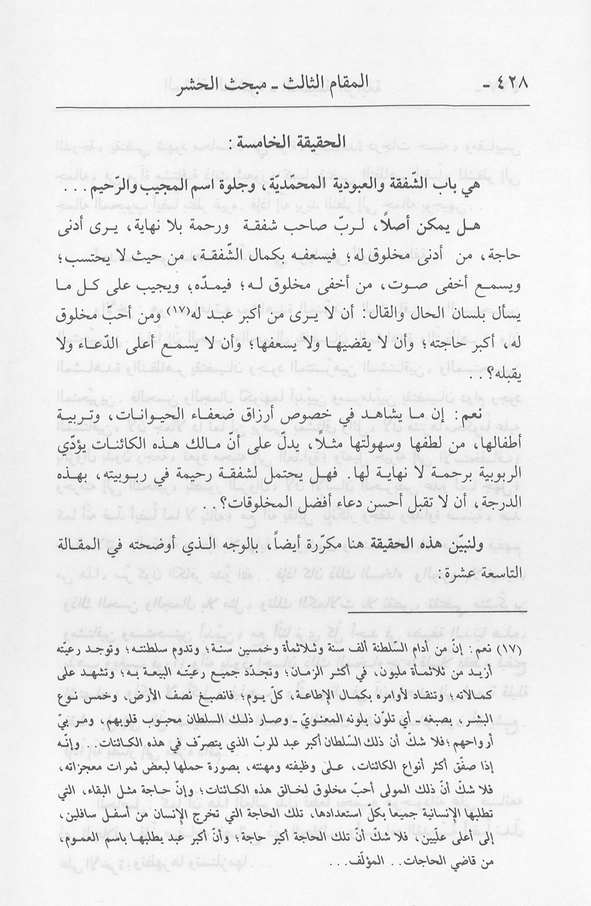 ٤٢٨ - المقام الثالث - مبحث الحشر
الحقيقة الخامسة :
هي باب الشّفقة والعبودية المحمّديّة، وجلوة اسم المجيب والرّحيم . . .
هـل يمكن أصلًا، لـربّ صاحب شفقـة ورحمة بلا نهاية، يـرى أدنى
حاجة، من أدنى مخلوق له؛ فيسعفـه بكمال الشّفقـة، من حيث لا يحتسب؛
ويسمـع أخفى صـوت، من أخفى مخلوق لـه؛ فيمدّه، ويجيب على كـل مـا
يسأل بلسان الحال والقال: أن لا يـرى من أكبر عبـد لـه(١٧) ومن أحبّ مخلوق
له، أكبر حاجته؛ وأن لا يقضيها ولا يسعفها؛ وأن لا يسمـع أعلى الدّعاء ولا
يقبله؟ . .
نعم: إن ما يشاهـد في خصوص أرزاق ضعفـاء الحيـوانـات، وتـربيـة
أطفالها، من لطفها وسهولتها مثـلًا، يدلّ على أنّ مـالك هـذه الكائنـات يؤدّي
الربوبية برحمة لا نهايـة لها. فهـل يحتمل لشفقـة رحيمة في ربـوبيته، بهـذه
الدرجة، أن لا تقبل أحسن دعاء أفضل المخلوقات؟ . .
ولنبيّن هذه الحقيقة هنا مكرّرة أيضاً، بالوجه الـذي أوضحته في المقـالة
التاسعة عشرة:
(١٧) نعم: إنّ من أدام السّلطنة ألف سنة وثـلاثمأة وخمسين سنـة؛ وتدوم سلطنتـه؛ وتوجـد رعيّته
أزيـد من ثـلاثمـأة مليـون، في أكثـر الـزمـان؛ وتجـدّد جميـع رعيّتـه البيعـة بـه؛ وتشهـد على
كمالاته؛ وتنقـاد لأوامره بكمـال الإطاعـة، كلّ يـوم؛ فانصبـغ نصف الأرض، وخمس نـوع
البشـر، بصبغـه - أي تلوّن بلونه المعنويّ - وصـار ذلـك السلطان محبوب قلوبهم، ومـربيّ
أرواحهم؛ فلا شكّ أن ذلك السّلطان أكبر عبد للربّ الذي يتصرّف في هذه الكـائنات. . وإنّـه
إذا صفّق أكثر أنواع الكائنات، على وظيفته ومهنته، بصورة حملها لبعض ثمرات معجزاته،
فلا شكّ أنّ ذلك المولى أحبّ مخلوق لخـالق هذه الكـائنات؛ وإنّ حـاجة مثـل البقاء، التي
تطلبها الإنسانية جميعاً بكلّ استعدادها، تلك الحاجة التي تخرج الإنسان من أسفـل سافلين،
إلى أعلى علّيين، فلا شكّ أنّ تلك الحاجة أكبر حاجة؛ وأنّ أكبر عبد يطلبها باسم العموم،
من قاضي الحاجات. . المؤلّف. . .